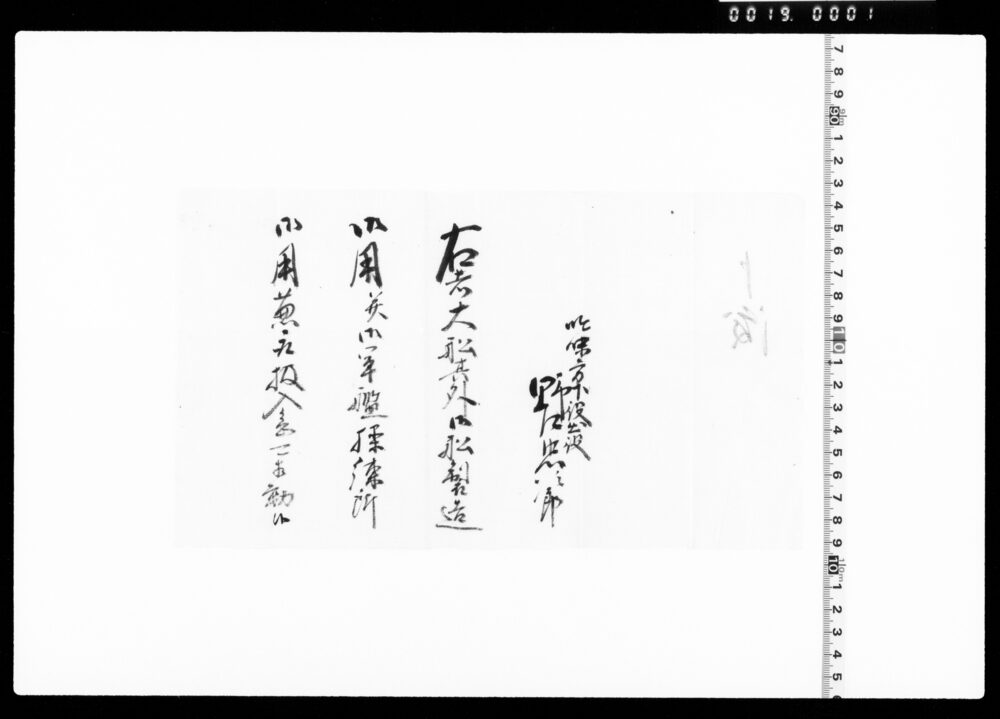 0019. 0001
吟味方下役出役
野村忠次郎
右者大船其外御船製造
御用并御軍艦操練所
御用兼取扱入念可相勤候
7 8 9 90 1 2 3 4 5 6 7 8 9 10 1 2 3 4 5 6 7 8 9 10 1 2 3 4 5